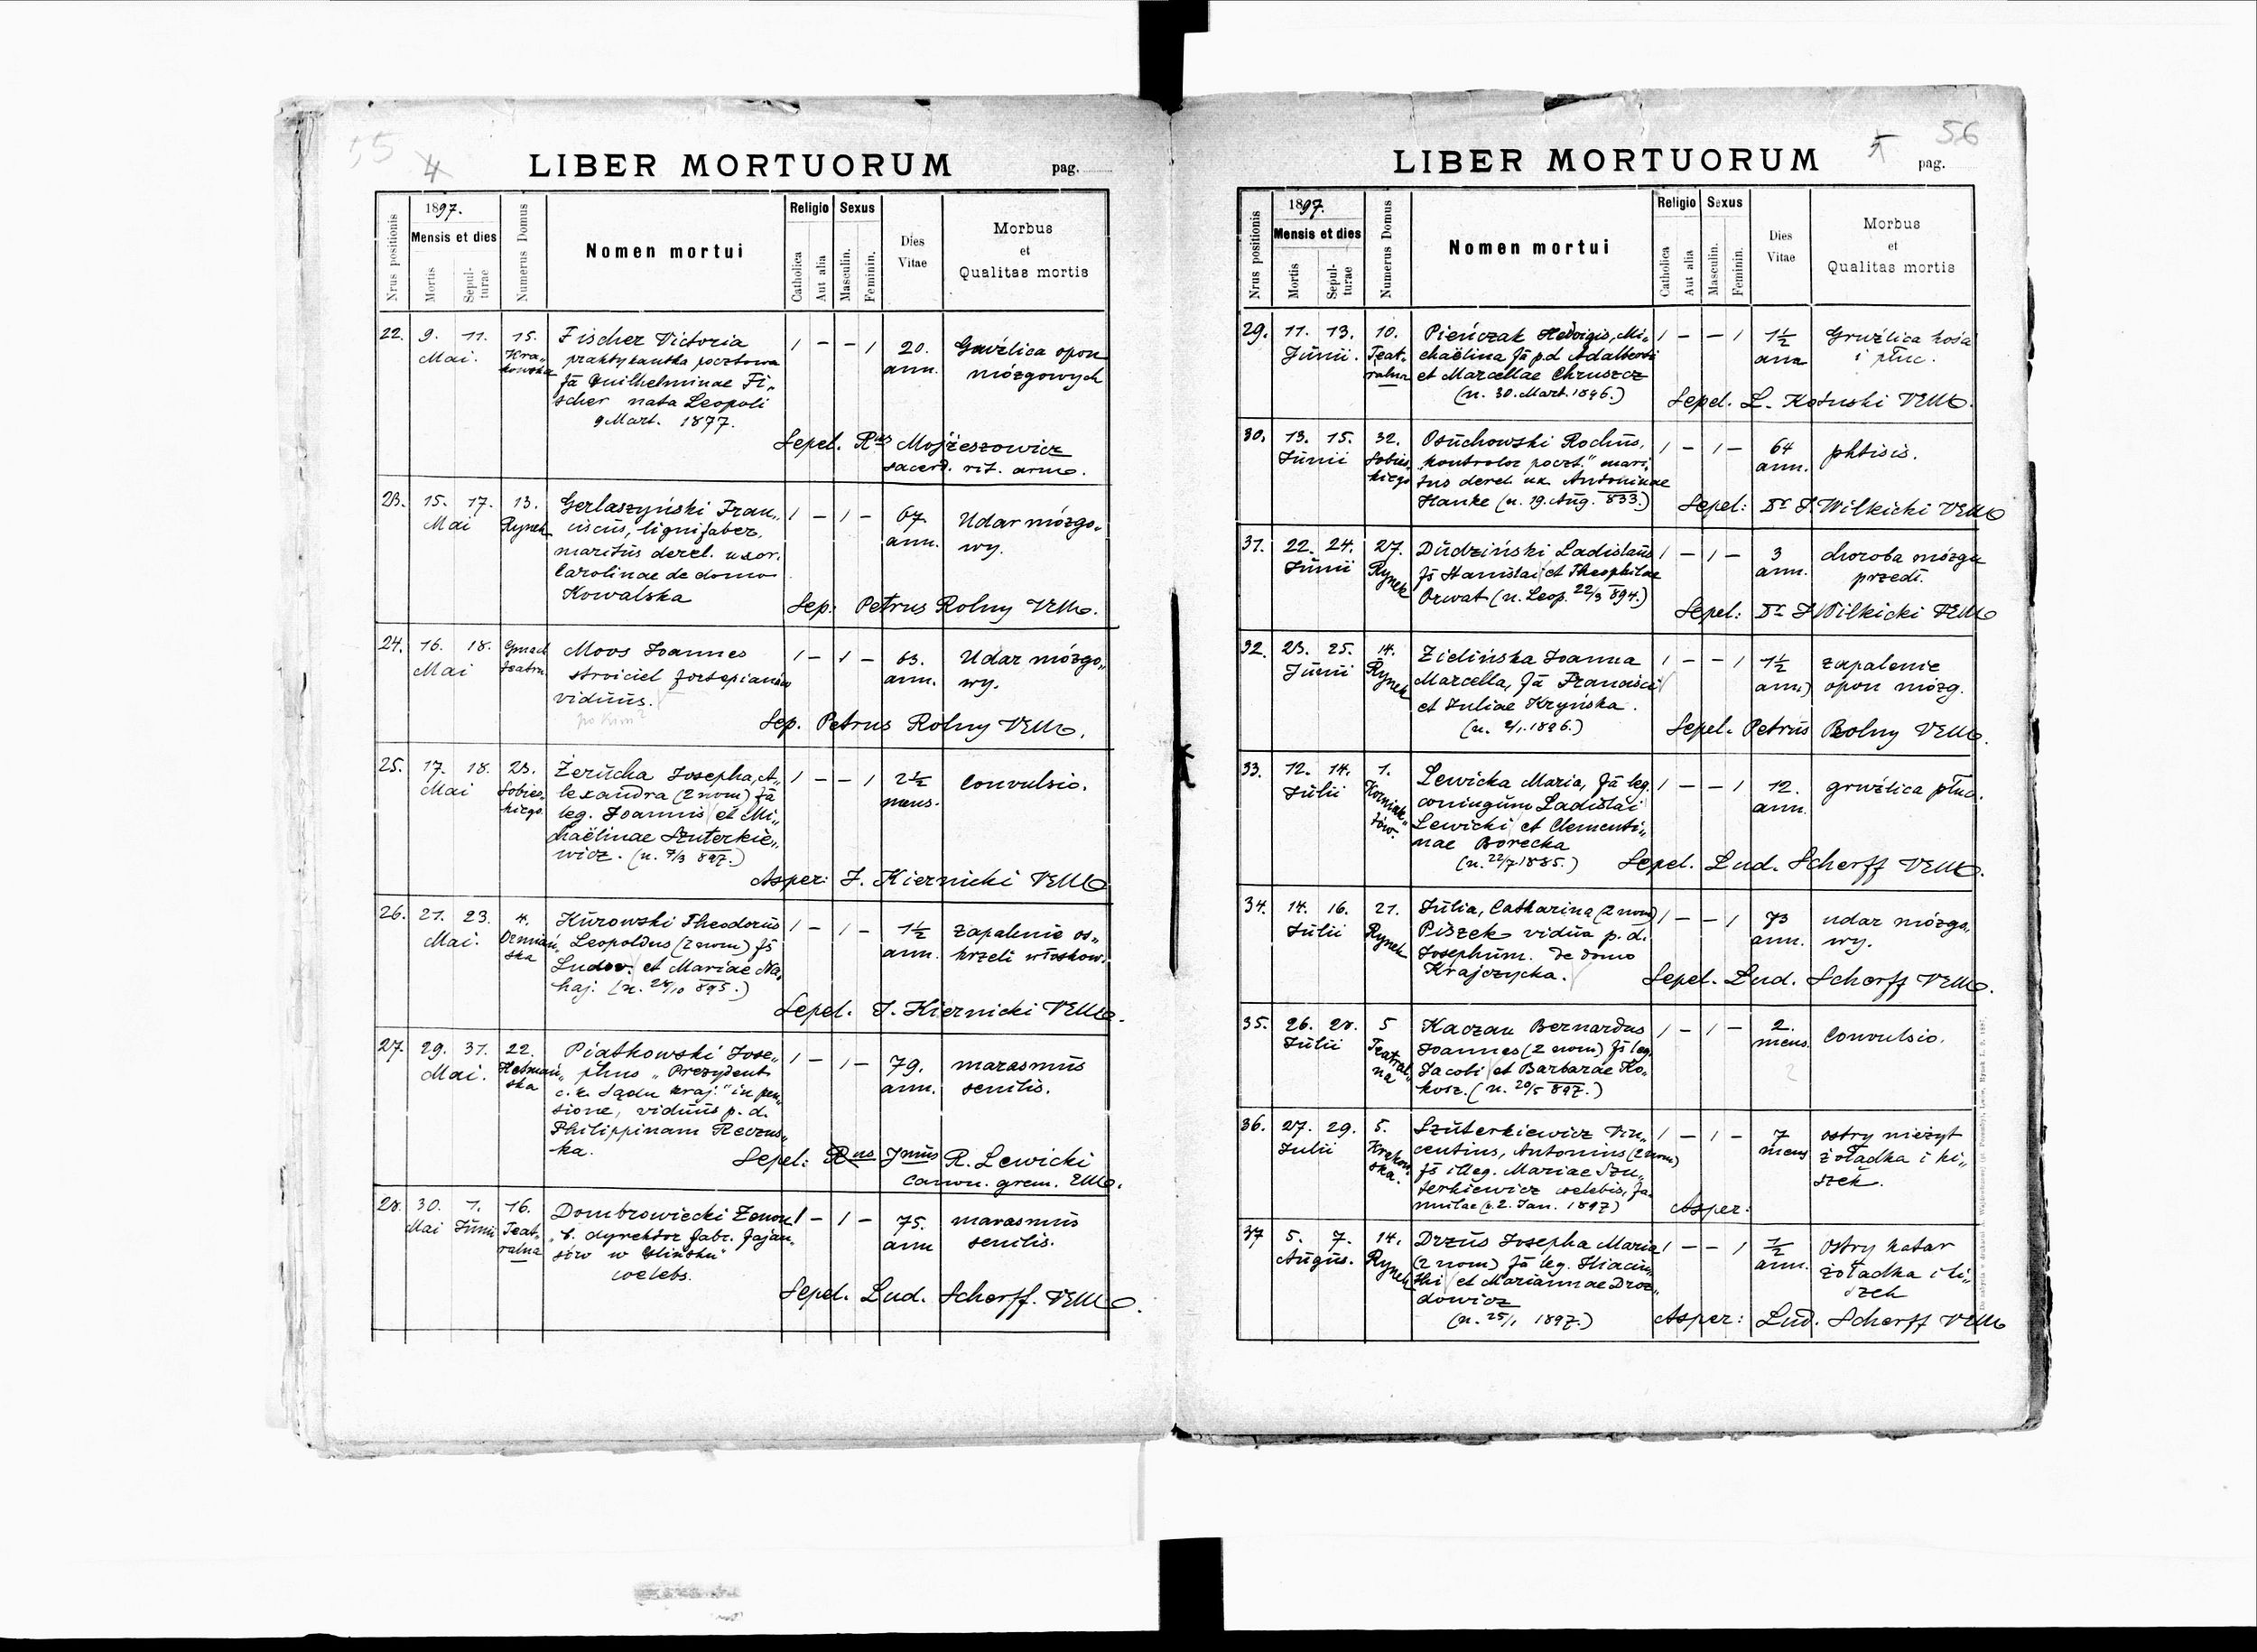 55
4
LIBER MORTUORUM pag.
Nrus positionis
1897.
Mensis et dies
Mortis
Sepul-
turae
Numerus Domus
Nomen mortui
Religio
Catholica
Aut alia
Sexus
Masculin.
Feminin.
Dies
Vitae
Morbus
et
Qualitas mortis
22. 9. 11. 15. Fischer Victoria 1 - - 1 20. Gruźlica opon
Mai. Kra„ praktykantka pocztowa ann. mózgowych
kowska fa Guilhelminae Fi„
scher nata Leopoli
9 Mart. 1877.
Sepel. Rus Mojżeszowicz
sacerd. rit. arme.
23. 15. 17. 13. Gerlaszyński Fran„ 1 - 1 - 67. Udar mózgo„
Mai Rynek ciscus, lignifaber, ann. wy.
maritus derel. uxor.
Carolinae de domo
Kowalska
Sep: Petrus Rolny VEMO.
24. 16. 18. Gmach Moos Joannes 1 - 1 - 63. Udar mózgo„
Mai teatru. stroiciel fortepianów ann. wy.
viduus.
Sep. Petrus Rolny VEMO.
25. 17. 18. 23. Żerucha Josepha, A„ 1 - - 1 2½ Convulsio.
Mai Sobies„ lexandra (2 nom) fa mens.
kiego leg. Joannis et Mi„
chaëlinae Szuterkie„
wicz. (n. 7/3 897.)
Asper: J. Kiernicki VEMO
26. 21. 23. 4. Kurowski Theodorus 1 - 1 - 1½ zapalenie os„
Mai. Ormiań„ Leopoldus (2 nom) fs ann. krzeli włoskow.
ska Ludov. et Mariae Na„
haj. (n. 28/10 895.)
Sepel. J. Kiernicki VEMO.
27. 29. 31. 22. Piatkowski Jose„ 1 - 1 - 79. marasmus
Mai. Hetmań„ phus „Prezydent ann. senilis.
ska c. k. Sądu kraj." in pen„
sione, viduus p. d.
Philippinam Reczus„
ka.
Sepel: Rus Jmus R. Lewicki
canon. grem. EMO.
28. 30. 1. 16. Dombrowiecki Zenon 1 - 1 - 75. marasmus
Mai Junii Teat„ „b. dyrektor fabr. fajan„ ann senilis.
ralna sów w Glińsku"
coelebs.
Sepel. Lud. Scherff. VEMO.
56
5
LIBER MORTUORUM pag.
Nrus positionis
1897.
Mensis et dies
Mortis
Sepul-
turae
Numerus Domus
Nomen mortui
Religio
Catholica
Aut alia
Sexus
Masculin.
Feminin.
Dies
Vitae
Morbus
et
Qualitas mortis
29. 11. 13. 10. Pieńczak Hedvigis, Mi„ 1 - - 1 1½ Gruźlica kości
Junii. Teat„ chaëlina fa p.d. Adalberti ann i płuc.
ralna et Marcellae Chruszcz
(n. 30. Mart. 1896.)
Sepel. L. Kotuski VEMO.
30. 13. 15. 32. Osuchowski Rochus, 1 - 1 - 64 phtisis.
Junii Sobies„ „kontrolor poczt." mari„ ann.
kiego tus derel. ux. Antoninae
Hanke (n. 19. Aug. 833.)
Sepel: Dr J. Wilkicki VEMO
31. 22. 24. 27. Dudziński Ladislaus 1 - 1 - 3 choroba mózgu
Junii Rynek fs Stanislai et Theophilae ann. przedł.
Orwat (n. Leop. 22/3 894.)
Sepel: Dr J Wilkicki VEMO
32. 23. 25. 14. Zielińska Joanna 1 - - 1 1½ zapalenie
Junii Rynek Marcella, fa Francisci ann. opon mózg.
et Juliae Kryńska.
(n. 2/1. 1896.)
Sepel. Petrus Rolny VEMO.
33. 12. 14. 1. Lewicka Maria, fa leg. 1 - - 1 12. gruźlica płuc.
Julii Korniak„ coniugum Ladislai ann.
tów. Lewicki et Clementi„
nae Borecka
(n. 22/7 1885.)
Sepel. Lud. Scherff VEMO.
34. 14. 16. 21. Julia, Catharina (2 nom) 1 - - 1 73 udar mózgo„
Julii Rynek Piszek vidua p. d. ann. wy.
Josephum. de domo
Krajczycka.
Sepel. Lud. Scherff VEMO.
35. 26. 28. 5 Kaczan Bernardus 1 - 1 - 2. Convulsio.
Julii Teatral„ Joannes (2 nom) fs leg. mens.
na Jacobi et Barbarae Ko„ ?
kosz. (n. 20/5 897.)
36. 27. 29. 5. Szuterkiewicz Vin„ 1 - 1 - 7 ostry nieżyt
Julii Krakow„ centius, Antonius (2 nom) mens żołądka i ki„
ska. fs illeg. Mariae Szu„ szek.
terkiewicz coelebis, fa„
mulae (n. 2. Jan. 1897)
Asper:
37 5. 7. 14. Drzus Josepha Maria 1 - - 1 ½ Ostry katar
Augus. Rynek (2 nom) fa leg. Hiacin„ ann. żołądka i ki„
thi et Mariannae Droz„ szek
dowicz
(n. 25/1 1897.)
Asper: Lud. Scherff VEMO